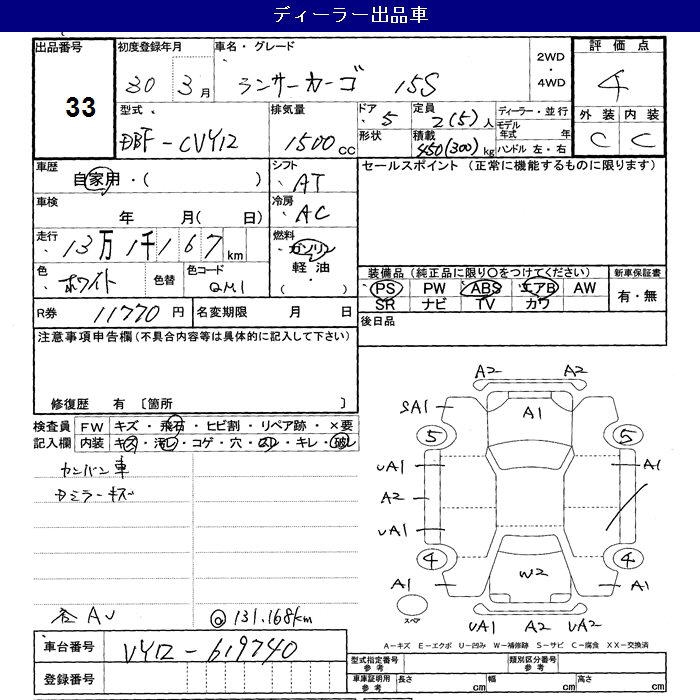 ディーラー出品車
出品番号 33
初度登録年月 30年 3月
車名・グレード ランサーカーゴ 15S
2WD・4WD
評価点 4
外装 C 内装 C
型式 DBF-CVY12
排気量 1500cc
ドア 5 形状
定員 2(5)人
積載 450(300)kg
ディーラー・並行
モデル年式 年
ハンドル 左・右
車歴 自家用・( )
シフト AT
車検 年 月( 日)
冷房 AC
走行 13万1千167km
燃料 ガソリン 軽油・
色 ホワイト 色替
色コード QM1
R券 11770円
名変期限 月 日
セールスポイント(正常に機能するものに限ります)
装備品(純正品に限り○をつけてください)
新車保証書
PS PW ABS エアB AW
SR ナビ TV カワ
有・無
後日品
注意事項申告欄(不具合内容等は具体的に記入して下さい)
修復歴 有〔箇所
検査員記入欄
FW キズ・飛石・ヒビ割・リペア跡・×要
内装 キズ・汚レ・コゲ・穴・スレ・キレ・破レ
カンバン車
Dミラーキズ
A2 A2
SA1 A1
5 5
UA1 A1
A2
UA1
4 4
A1 W2 A1
スペア
UA1 A2 UA2
各AU @131,168km
A=キズ E=エクボ U=凹み W=補修跡 S=サビ C=腐食 XX=交換済
車台番号 VY12-619740
登録番号
型式指定番号 参考
類別区分番号 参考
車庫証明用 参考
長さ cm 幅 cm 高さ cm